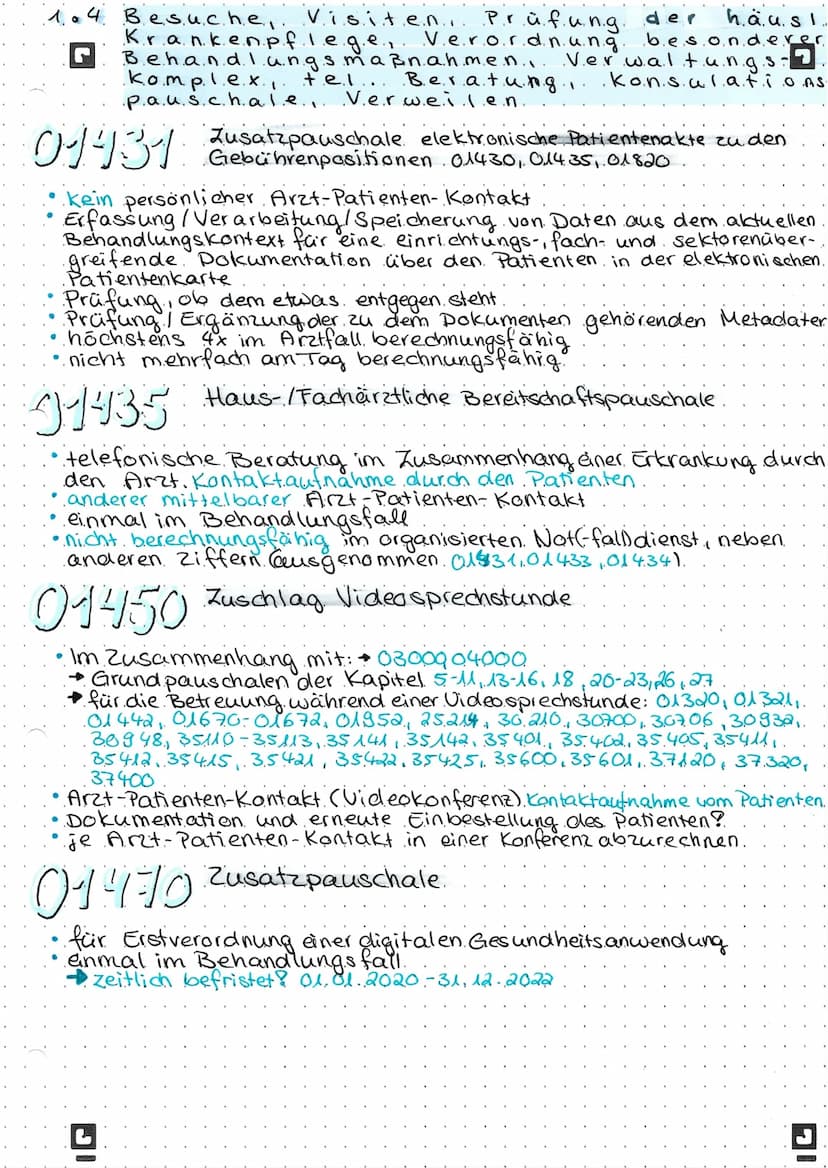 1.4 Besuche, Visiten, Prüfung der häusl.
Krankenpflege, Verordnung besonderer
Behandlungsmaßnahmen, Verwaltungs-
Komplex, tel. Beratung, Konsulations
pauschale, Verweilen
01431 Zusatzpauschale elektronische Patientenakte zu den
Gebührenpositionen 01430, 01435, 01820
• kein persönlicher Arzt-Patienten-Kontakt
• Erfassung/Verarbeitung/Speicherung von Daten aus dem aktuellen
Behandlungskontext für eine einrichtungs-, fach- und sektorenüber-
greifende Dokumentation über den Patienten in der elektronischen
Patientenkarte
• Prüfung, ob dem etwas entgegen steht
• Prüfung/Ergänzung der zu dem Dokumenten gehörenden Metadaten
• höchstens 4x im Arztfall berechnungsfähig
• nicht mehrfach am Tag berechnungsfähig
01435 Haus-/Fachärztliche Bereitschaftspauschale
• telefonische Beratung im Zusammenhang einer Erkrankung durch
den Arzt. Kontaktaufnahme durch den Patienten
• anderer mittelbarer Arzt-Patienten-Kontakt
• einmal im Behandlungsfall
• nicht berechnungsfähig im organisierten Not(-fall)dienst, neben
anderen Ziffern (ausgenommen 01431, 01433, 01434)
01450 Zuschlag Videosprechstunde
• Im Zusammenhang mit: → 03000 04000
→ Grundpauschalen der Kapitel 5-11, 13-16, 18, 20-23, 26, 27
→ für die Betreuung während einer Videosprechstunde: 01320, 01321,
01442, 01670-01672, 01952, 25214, 30210, 30700, 30706, 30932,
30948, 35110-35113, 35141, 35142, 35401, 35402, 35405, 35411,
35412, 35415, 35421, 35422, 35425, 35600, 35601, 37120, 37320,
37400
• Arzt-Patienten-Kontakt (Videokonferenz) Kontaktaufnahme vom Patienten
• Dokumentation und erneute Einbestellung des Patienten?
• je Arzt-Patienten-Kontakt in einer Konferenz abzurechnen.
01470 Zusatzpauschale
• für Erstverordnung einer digitalen Gesundheitsanwendung
• einmal im Behandlungsfall
→ zeitlich befristet? 01.01.2020-31.12.2022